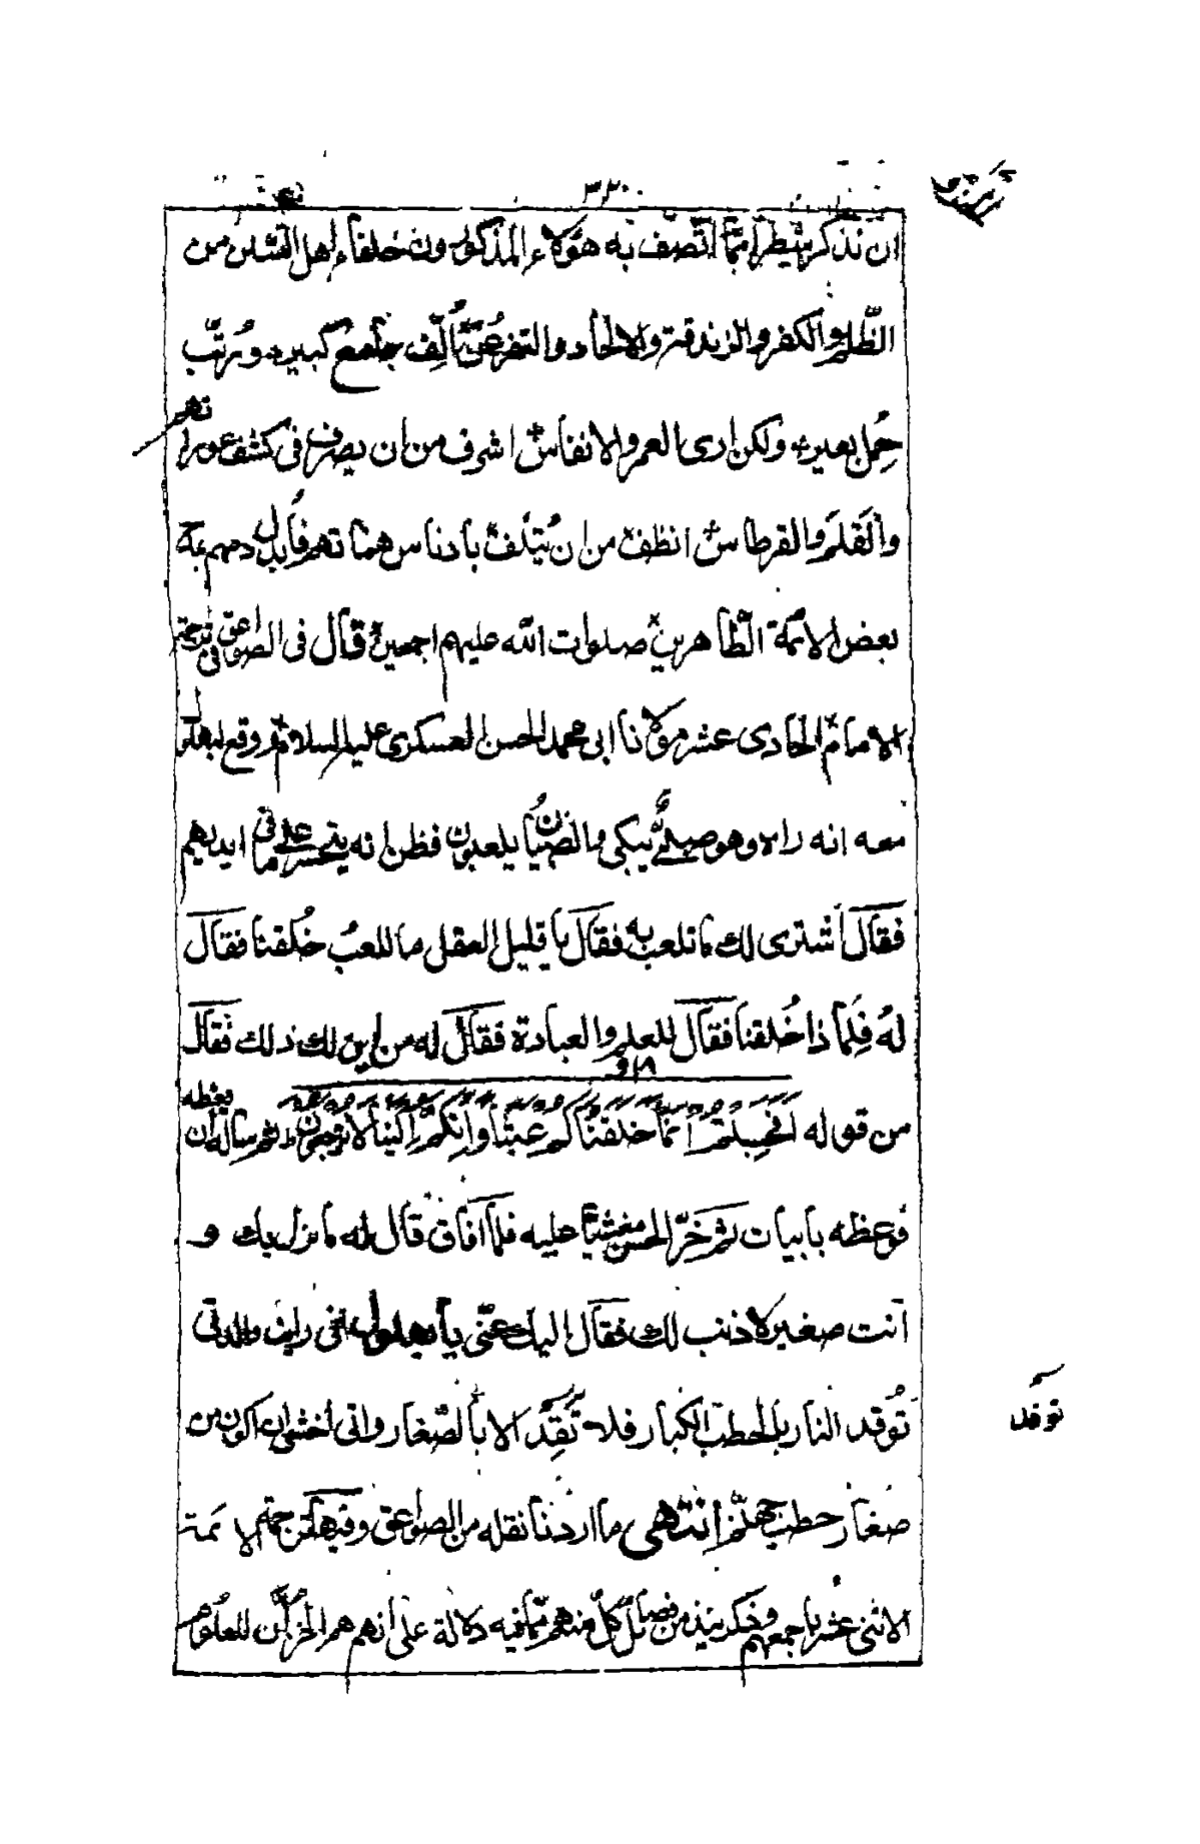 ٣٢٠
ان نذكر شطرا مما اتصف به هؤلاء المذكورون خلفاء اهل التسنن من
الظلم والكفر والزندقة والالحاد والتفرعن تألف جامع كبير، ويرتب
حمل بعير، ولكن ارى العمر والانفاس اشرف من ان يصرف فى كشف عوراتهم
والقلم والقرطاس انظف من ان يتلف بادناس هماتهم فابدل
بعض الائمة الطاهرين صلوات الله عليهم اجمعين قال فى الصواعق فى ترجمة
الامام الحادى عشر مولانا ابى محمد الحسن العسكرى عليه السلام وقع لبهلول
معه انه راه وهو صبى يبكى والصبيان يلعبون فظن انه يتحسر على ما فى ايديهم
فقال اشترى لك ما تلعب به فقال يا قليل العقل ما للعب خلقنا فقال
له فلماذا خلقنا فقال للعلم والعبادة فقال له من اين لك ذلك فقال
من قوله افحسبتم انما خلقناكم عبثا وانكم الينا لا ترجعون ثم ساله ان يعظه
فوعظه بابيات ثم خر الحسن مغشيا عليه فلما افاق قال له ما نزل بك و
انت صغير لا ذنب لك فقال اليك عنى يا بهلول انى رايت والدتى
توقد النار بالحطب الكبار فلا تقد الا بالصغار وانى اخشى ان اكون من
توقد
صغار حطب جهنم انتهى ما اردنا نقله من الصواعق وفيها ترجمة الائمة
الاثنى عشر باجمعهم وذكر نبذ من فضائل كل منهم مما فيه دلالة على انهم هم الخزان للعلوم